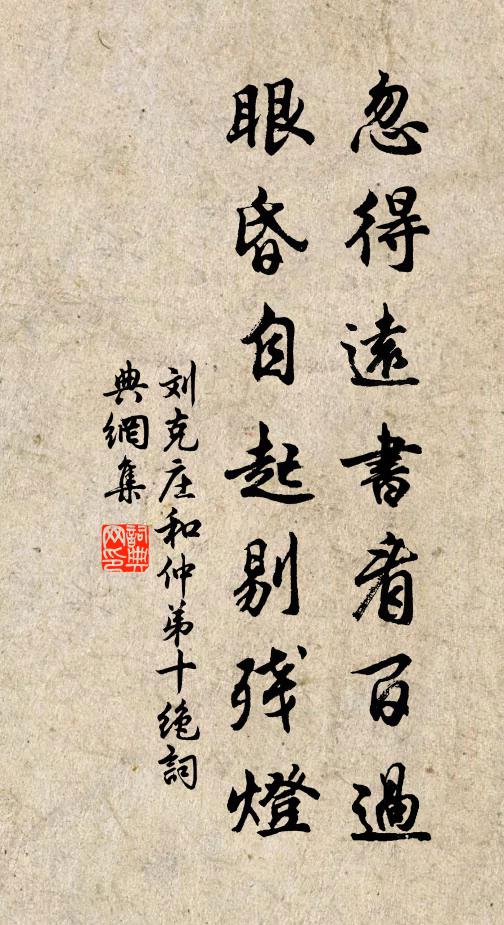 忽得遠書看百過
眼昏自起剔残燈
刘克庄和仲弟十绝詞
典網集
詞典
网印